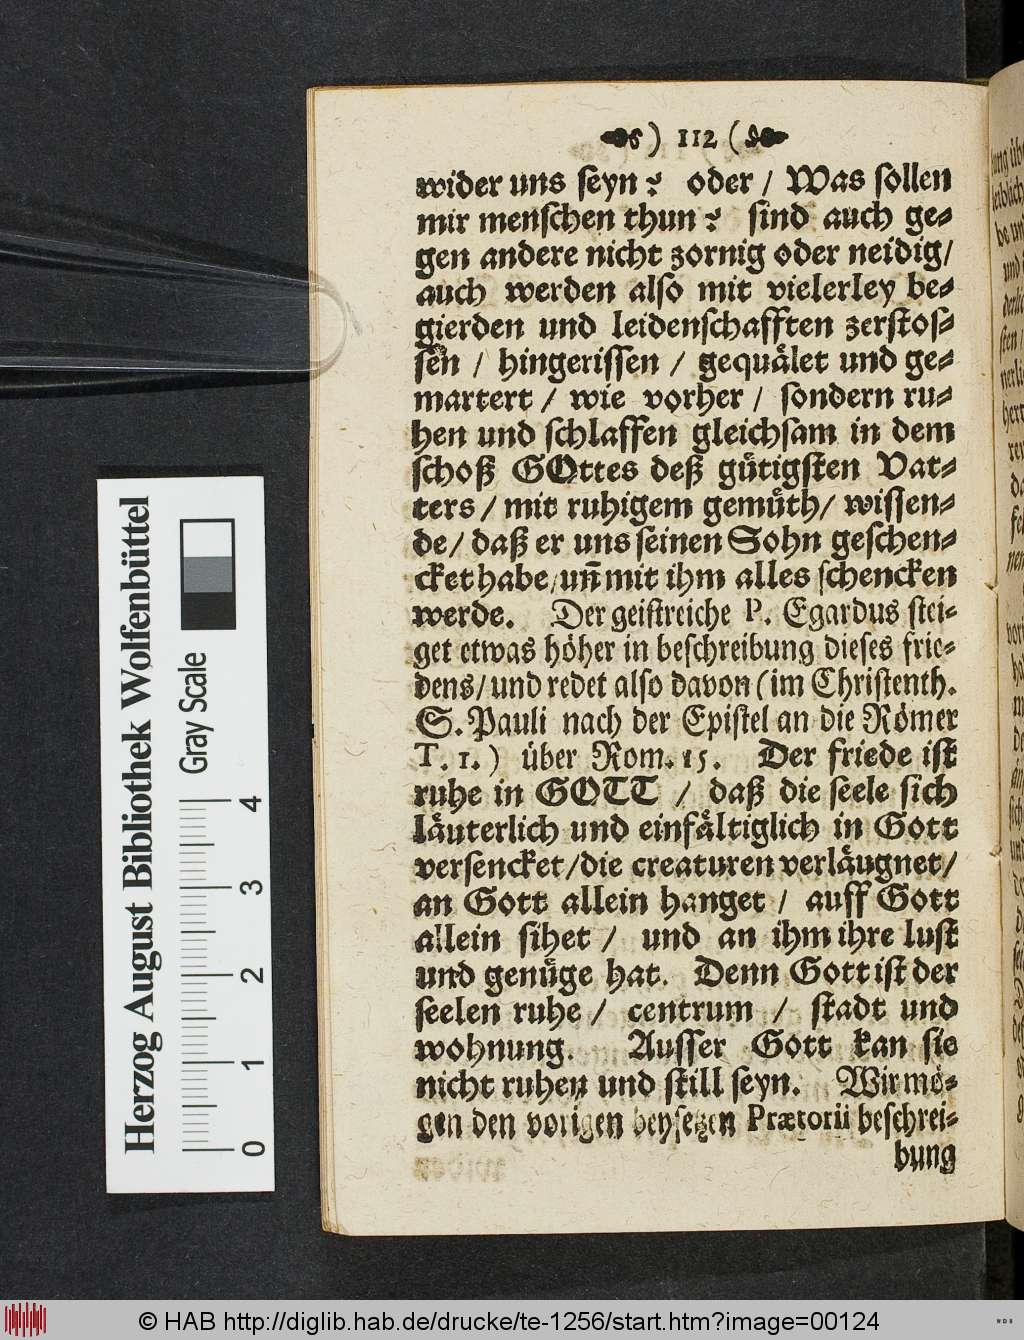 ) 112 (
wider uns seyn? oder / Was sollen
mir menschen thun? sind auch ge-
gen andere nicht zornig oder neidig/
auch werden also mit vielerley be-
gierden und leidenschafften zerstos-
sen / hingerissen / gequälet und ge-
martert / wie vorher / sondern ru-
hen und schlaffen gleichsam in dem
schoß GOttes deß gütigsten Vat-
ters / mit ruhigem gemüth/ wissen-
de/ daß er uns seinen Sohn geschen-
cket habe/ uñ mit ihm alles schencken
werde. Der geistreiche P. Egardus stei-
get etwas höher in beschreibung dieses frie-
dens/ und redet also davon (im Christenth.
S. Pauli nach der Epistel an die Römer
T. 1.) über Rom. 15. Der friede ist
ruhe in GOTT / daß die seele sich
läuterlich und einfältiglich in Gott
versencket/die creaturen verläugnet/
an Gott allein hanget / auff Gott
allein sihet / und an ihm ihre lust
und genüge hat. Denn Gott ist der
seelen ruhe / centrum / stadt und
wohnung. Ausser Gott kan sie
nicht ruhen und still seyn. Wir mö-
gen den vorigen beysetzen Prætorii beschrei-
bung
Herzog August Bibliothek Wolfenbüttel
Gray Scale
0 1 2 3 4
© HAB http://diglib.hab.de/drucke/te-1256/start.htm?image=00124